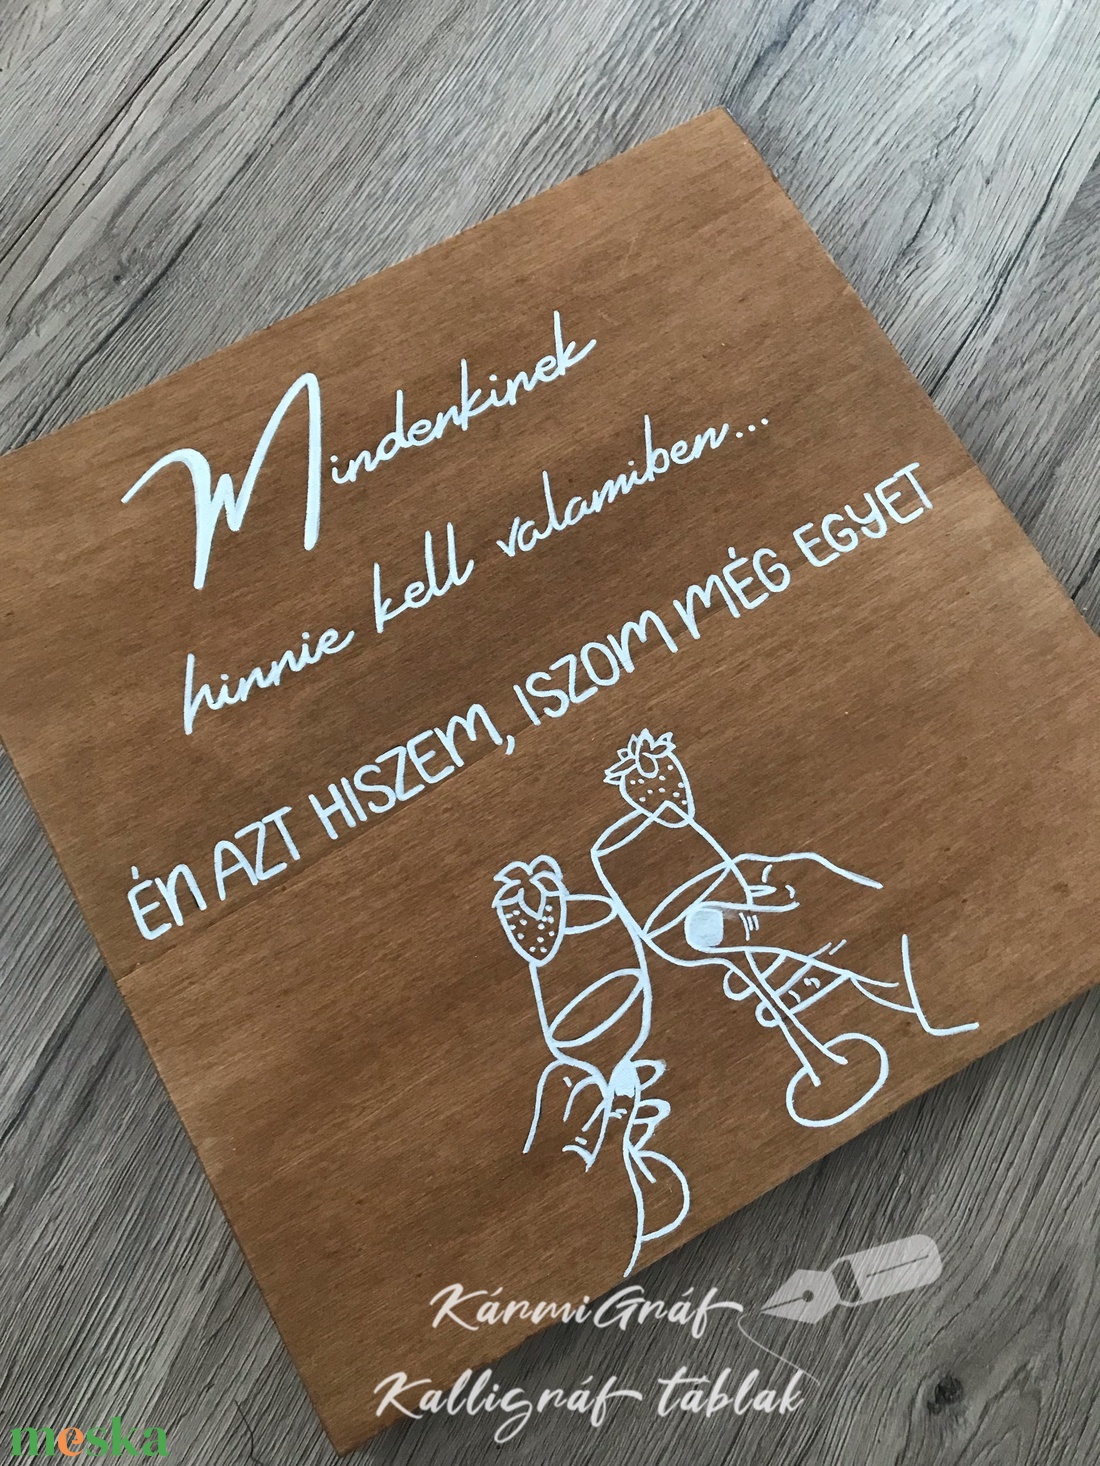 Mindenkinek
hinnie kell valamiben...
ÉN AZT HISZEM, ISZOM MÉG EGYET
KármiGráf
Kalligráf táblák
meska